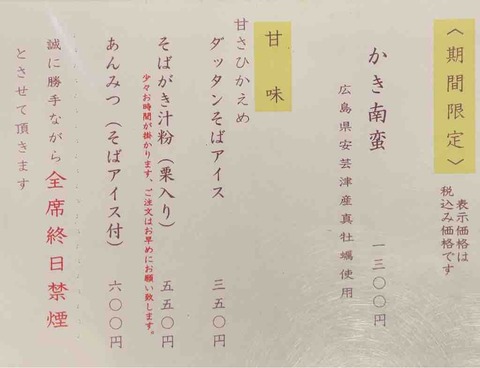 〈期間限定〉
表示価格は
税込み価格です
かき南蛮 一三〇〇円
広島県安芸津産真牡蠣使用
甘味
甘さひかえめ
ダッタンそばアイス 三五〇円
そばがき汁粉（栗入り） 五五〇円
少々お時間が掛かります、ご注文はお早めにお願い致します。
あんみつ（そばアイス付） 六〇〇円
誠に勝手ながら 全席終日禁煙
とさせて頂きます